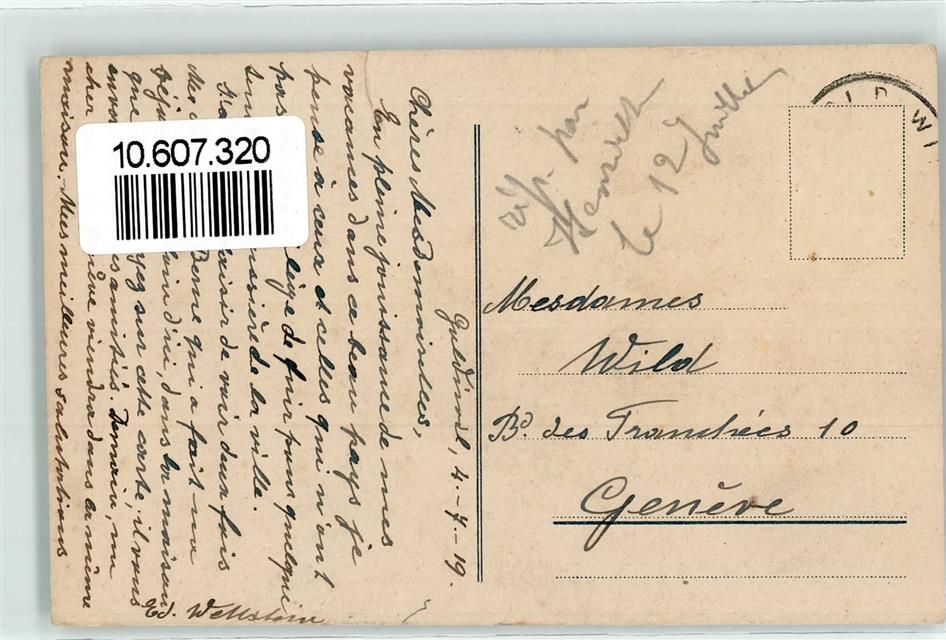 Guldimil, 4.-7-19.
Chères Mesdemoiselles,
En pleine jouissance de mes
vacances dans ce beau pays je
pense à ceux et celles qui n'ont
pas lège de fuir pour quelque
de la ville.
de voir deux fois
Mes Berne qui a fait un
d'ici, dans la maison
que sur cette carte, il vous
amitiés. Demain, un
cher viendra dans la même
maison. Mes meilleures salutations
Ed. Wettstein
rép. par
Henriette
le 12 Juillet
Mesdames
Wild
Bd. des Tranchées 10
Genève
10.607.320